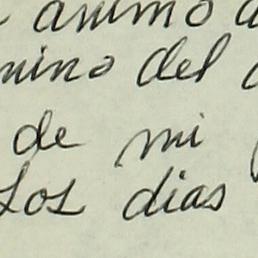 animo
mino del
de mi
Los dias